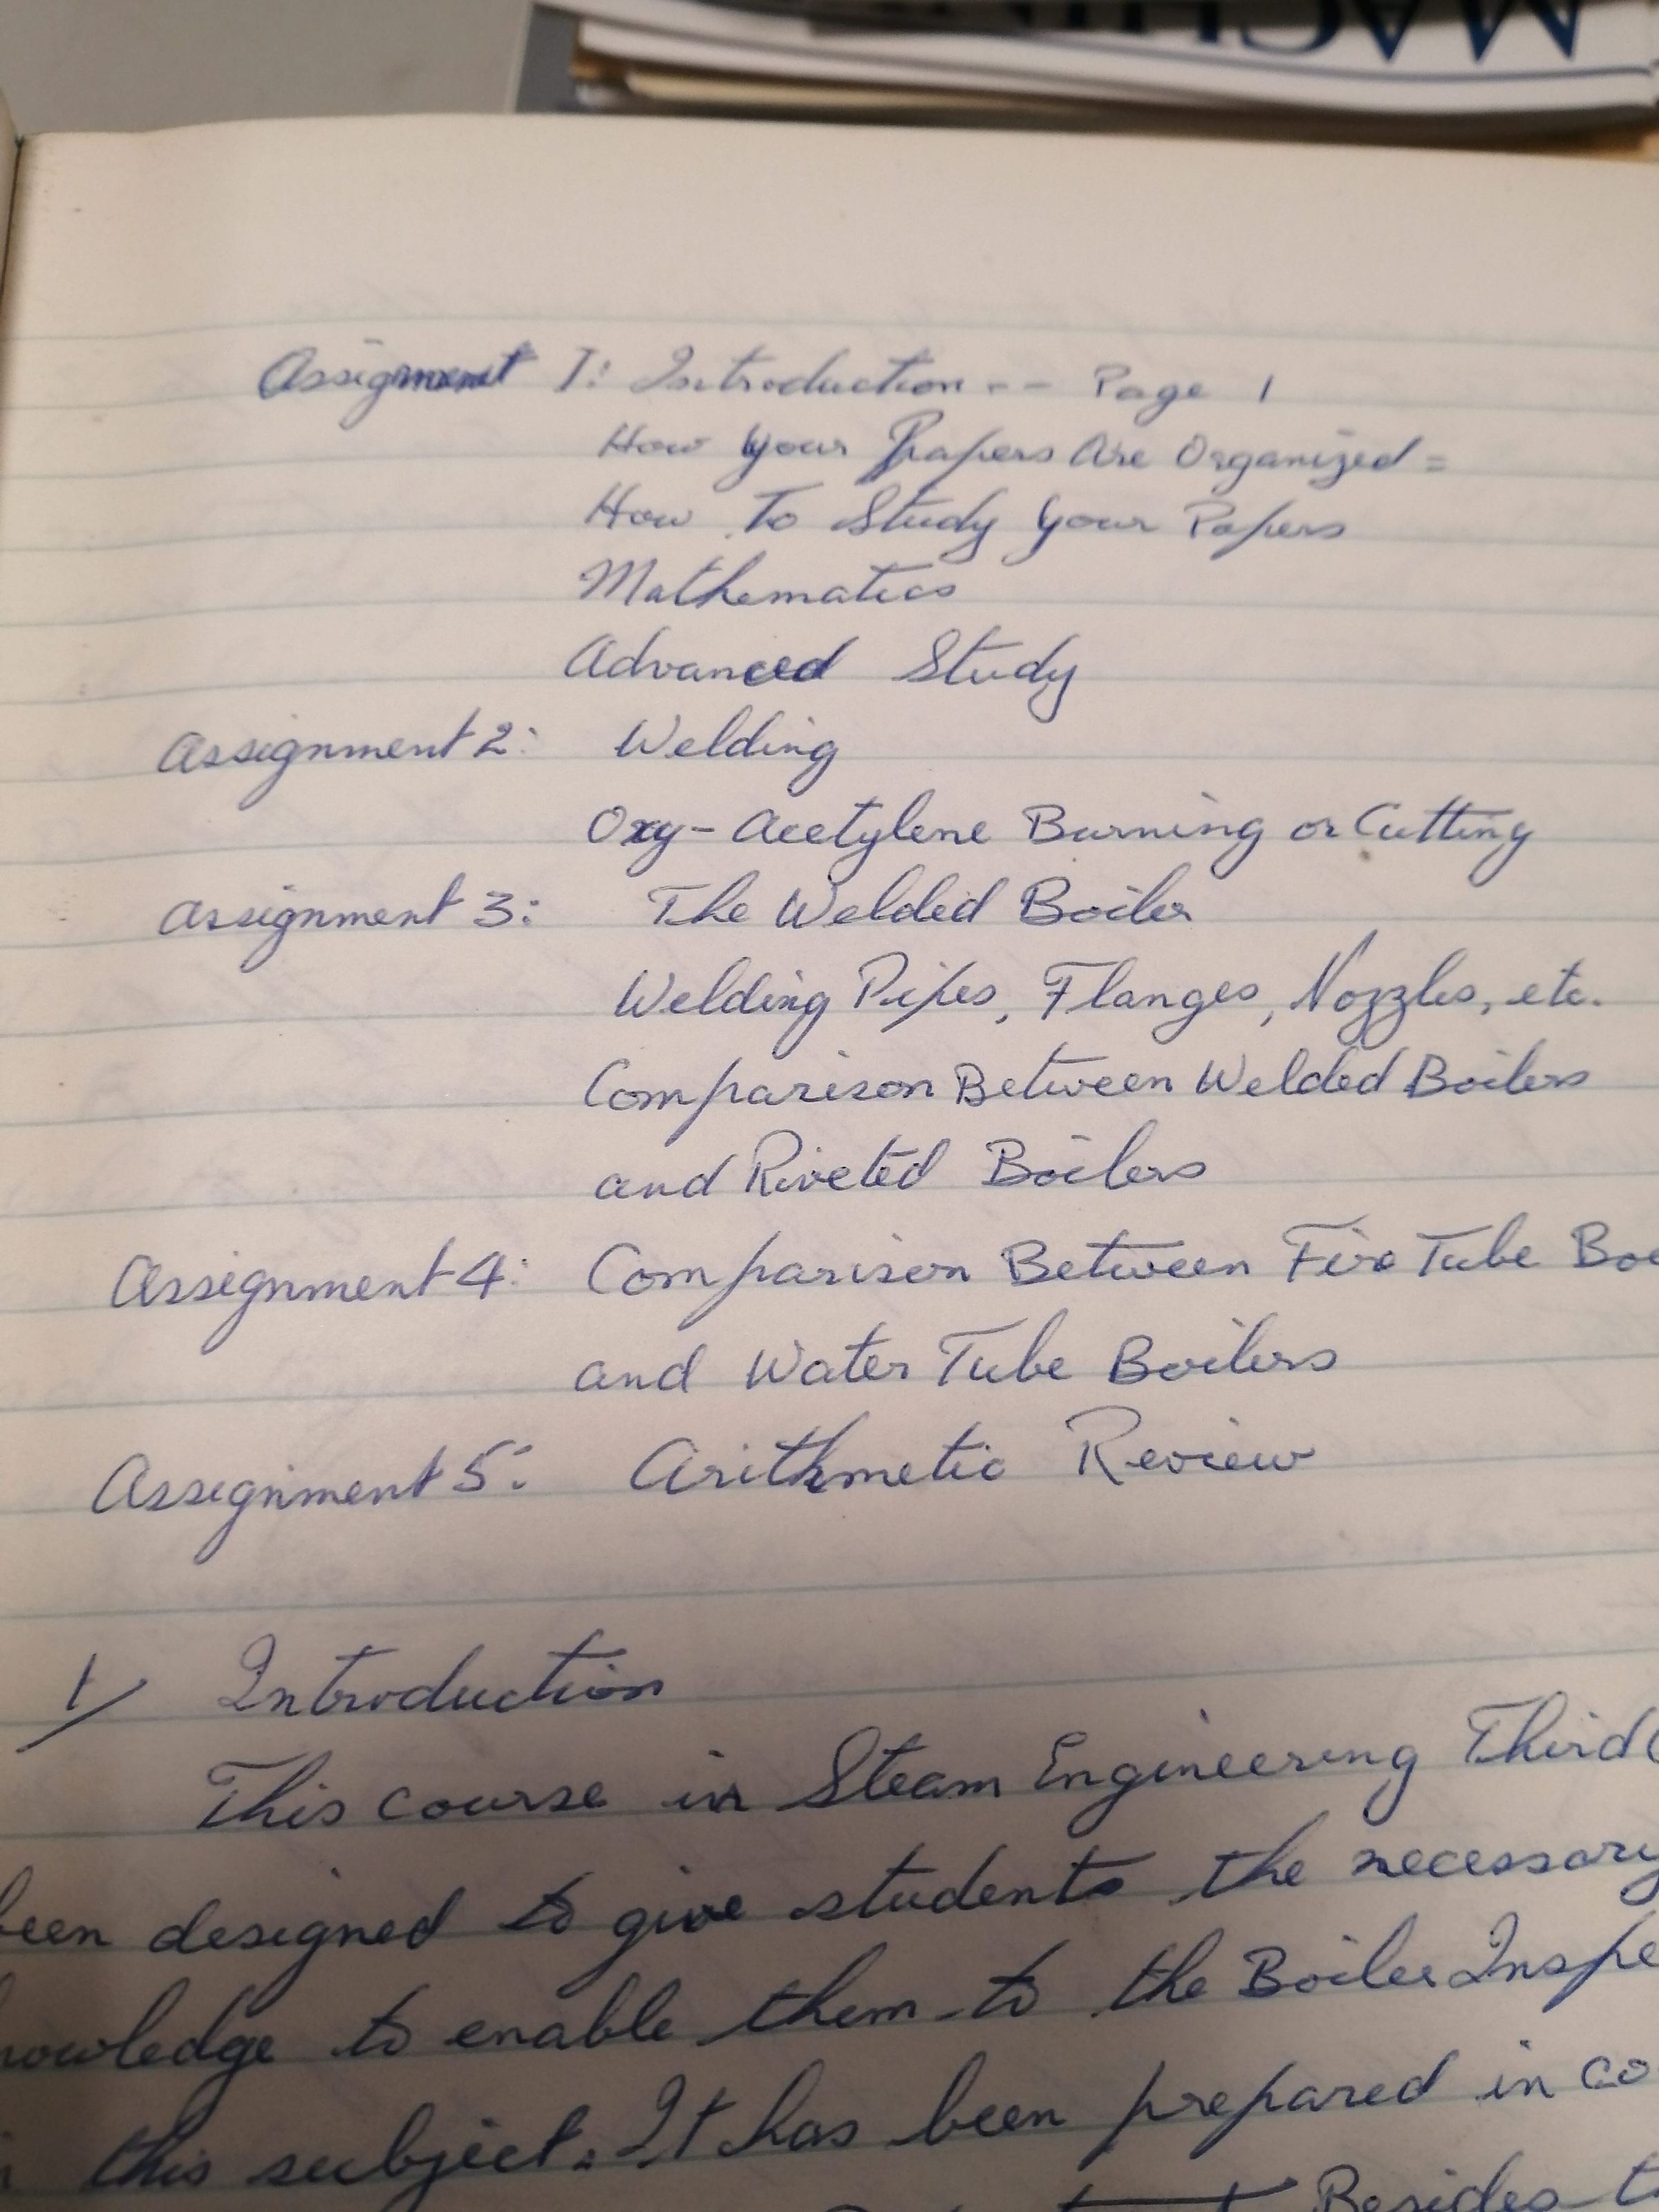 Assignment I: Introduction -- Page 1
How Your Papers Are Organized =
How To Study Your Papers
Mathematics
Advanced Study
Assignment 2: Welding
Oxy-Acetylene Burning or Cutting
Assignment 3: The Welded Boiler
Welding Pipes, Flanges, Nozzles, etc.
Comparison Between Welded Boilers
and Riveted Boilers
Assignment 4: Comparison Between Fire Tube Boi
and Water Tube Boilers
Assignment 5: Arithmetic Review
1/ Introduction
This course in Steam Engineering Third
een designed to give students the necessary
nowledge to enable them to the Boiler Inspe
this subject. It has been prepared in co
Besides t